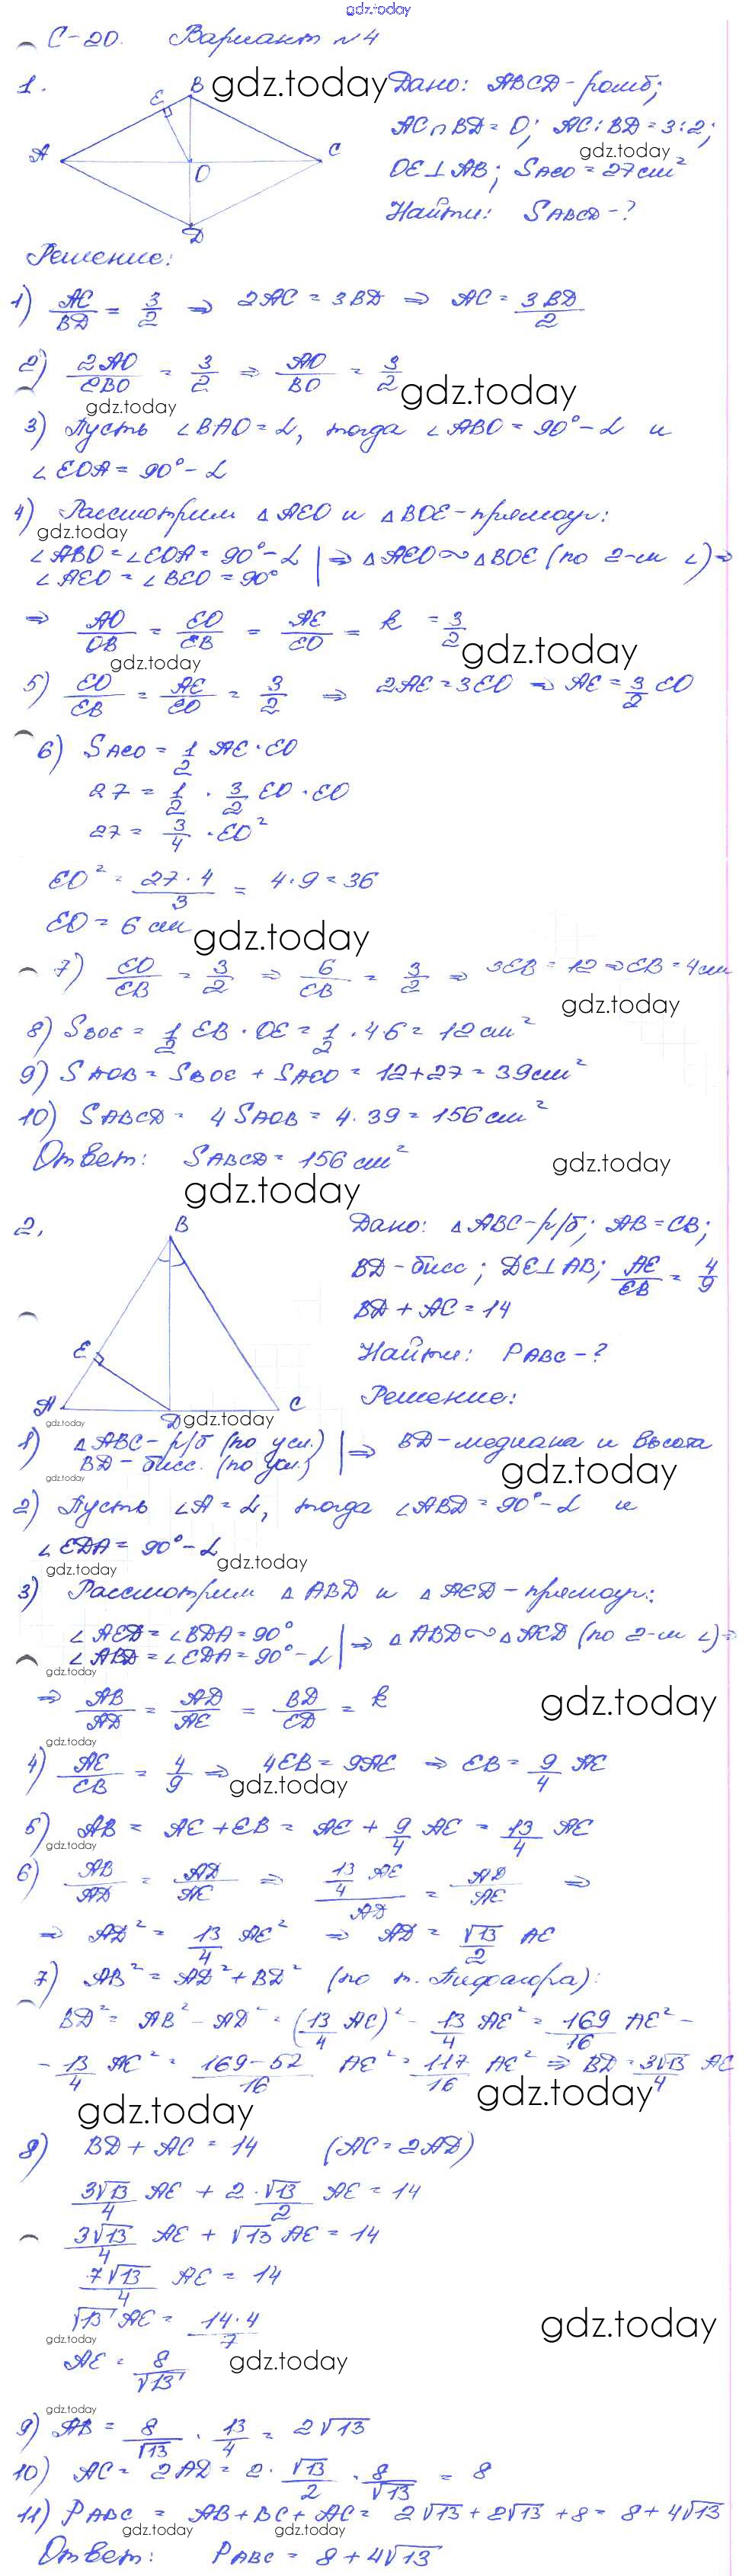 gdz.today
С-20. Вариант №4
1.
B
E
A
O
C
D
gdz.today
Дано: ABCD - ромб;
AC∩BD = O; AC:BD = 3:2;
gdz.today
OE⊥AB; S AEO = 27 см²
Найти: S ABCD - ?
Решение:
1) AC/BD = 3/2 ⇒ 2AC = 3BD ⇒ AC = 3BD/2
2) 2AO/2BO = 3/2 ⇒ AO/BO = 3/2
gdz.today
gdz.today
3) Пусть ∠BAO = α, тогда ∠ABO = 90° - α и
∠EOA = 90° - α
4) Рассмотрим △AEO и △BOE - прямоуг:
gdz.today
∠ABO = ∠EOA = 90° - α | ⇒ △AEO ∼ △BOE (по 2-м ∠) ⇒
∠AEO = ∠BEO = 90°
⇒ AO/OB = EO/EB = AE/EO = k = 3/2
gdz.today
gdz.today
5) EO/EB = AE/EO = 3/2 ⇒ 2AE = 3EO ⇒ AE = 3/2 EO
6) S AEO = 1/2 AE · EO
27 = 1/2 · 3/2 EO · EO
27 = 3/4 · EO²
EO² = 27·4/3 = 4·9 = 36
EO = 6 см
gdz.today
7) EO/EB = 3/2 ⇒ 6/EB = 3/2 ⇒ 3EB = 12 ⇒ EB = 4 см
gdz.today
8) S BOE = 1/2 EB · OE = 1/2 · 4·6 = 12 см²
9) S AOB = S BOE + S AEO = 12 + 27 = 39 см²
10) S ABCD = 4 S AOB = 4 · 39 = 156 см²
Ответ: S ABCD = 156 см²
gdz.today
gdz.today
2.
B
E
A
D
C
Дано: △ABC - р/б; AB = CB;
BD - бисс; DE⊥AB; AE/EB = 4/9
BD + AC = 14
Найти: P ABC - ?
Решение:
gdz.today
gdz.today
1) △ABC - р/б (по усл.) | ⇒ BD - медиана и высота
BD - бисс. (по усл.)
gdz.today
gdz.today
2) Пусть ∠A = α, тогда ∠ABD = 90° - α и
∠EDA = 90° - α
gdz.today
gdz.today
3) Рассмотрим △ABD и △AED - прямоуг.:
∠AED = ∠BDA = 90°
∠ABD = ∠EDA = 90° - α | ⇒ △ABD ∼ △AED (по 2-м ∠) ⇒
gdz.today
⇒ AB/AD = AD/AE = BD/ED = k
gdz.today
gdz.today
4) AE/EB = 4/9 ⇒ 4EB = 9AE ⇒ EB = 9/4 AE
gdz.today
5) AB = AE + EB = AE + 9/4 AE = 13/4 AE
gdz.today
6) AB/AD = AD/AE ⇒ 13/4 AE / AD = AD/AE ⇒
⇒ AD² = 13/4 AE² ⇒ AD = √13/2 AE
7) AB² = AD² + BD² (по т. Пифагора):
BD² = AB² - AD² = (13/4 AE)² - 13/4 AE² = 169/16 AE² -
- 13/4 AE² = 169-52/16 AE² = 117/16 AE² ⇒ BD = 3√13/4 AE
gdz.today
gdz.today
8) BD + AC = 14 (AC = 2AD)
3√13/4 AE + 2 · √13/2 AE = 14
3√13/4 AE + √13 AE = 14
7√13/4 AE = 14
√13 AE = 14·4/7
gdz.today
gdz.today
AE = 8/√13
gdz.today
gdz.today
9) AB = 8/√13 · 13/4 = 2√13
10) AC = 2AD = 2 · √13/2 · 8/√13 = 8
11) P ABC = AB + BC + AC = 2√13 + 2√13 + 8 = 8 + 4√13
gdz.today
gdz.today
Ответ: P ABC = 8 + 4√13